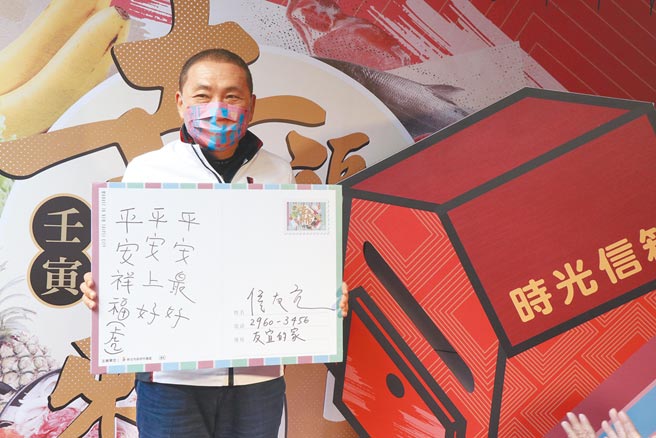 壬寅
平安最好
平安上好
平安祥福
姓名 侯友宜
電話 2960-3456
地址 友宜的家
時光信箱